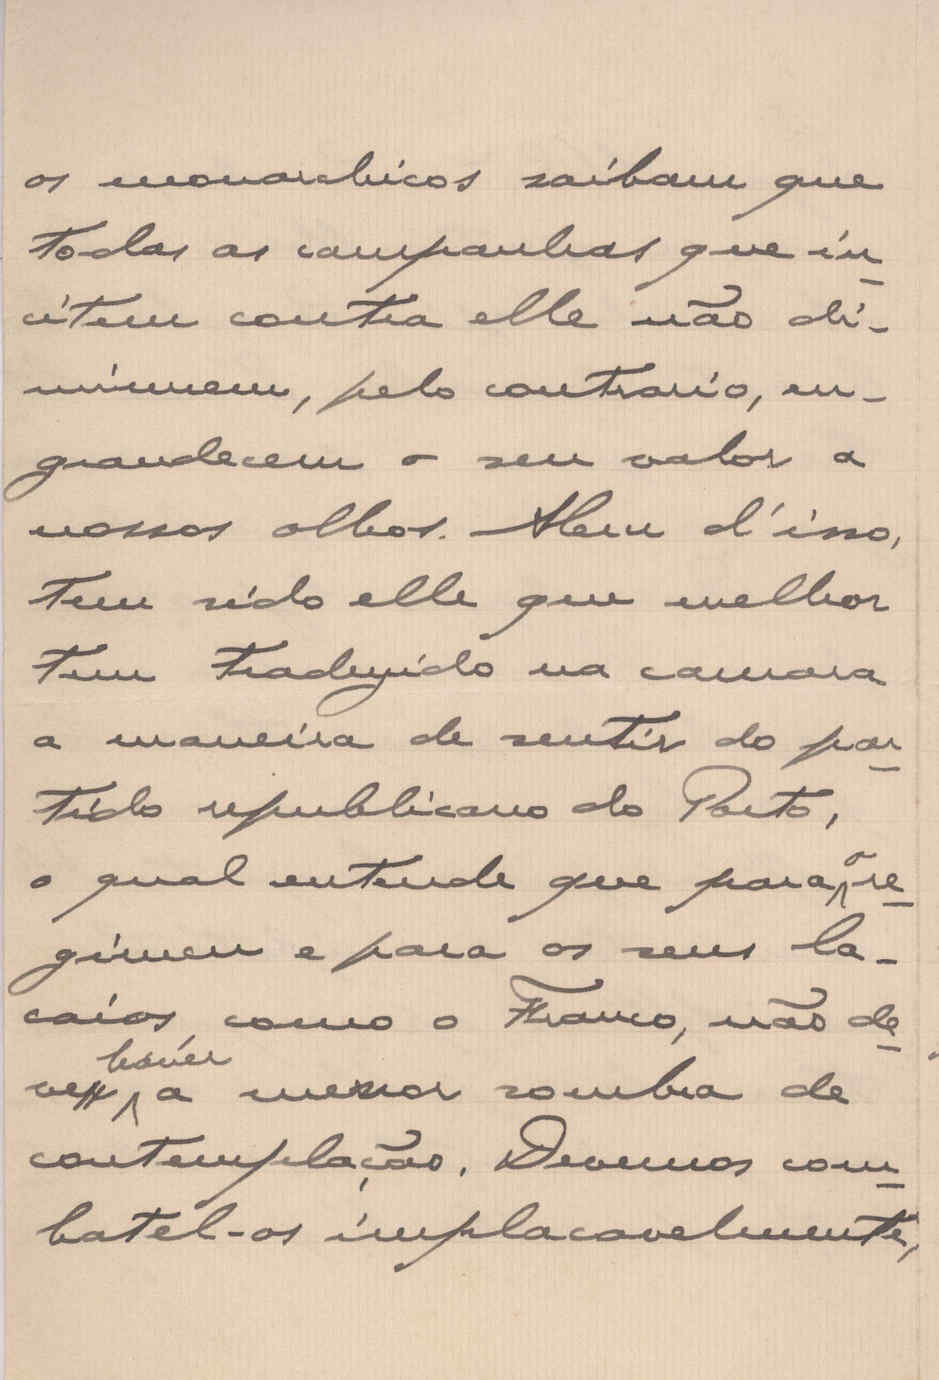 os monarchicos saibam que
todas as campanhas que in-
citem contra elle não di-
minuem, pelo contrario, en-
grandecem o seu valor a
nossos olhos. Alem d'isso,
tem sido elle que melhor
tem traduzido na camara
a maneira de sentir do par-
tido republicano do Porto,
o qual entende que para o re-
gimen e para os seus la-
caios, como o Franco, não de-
ve haver a menor sombra de
contemplação. Devemos com-
batel-os implacavelmente,